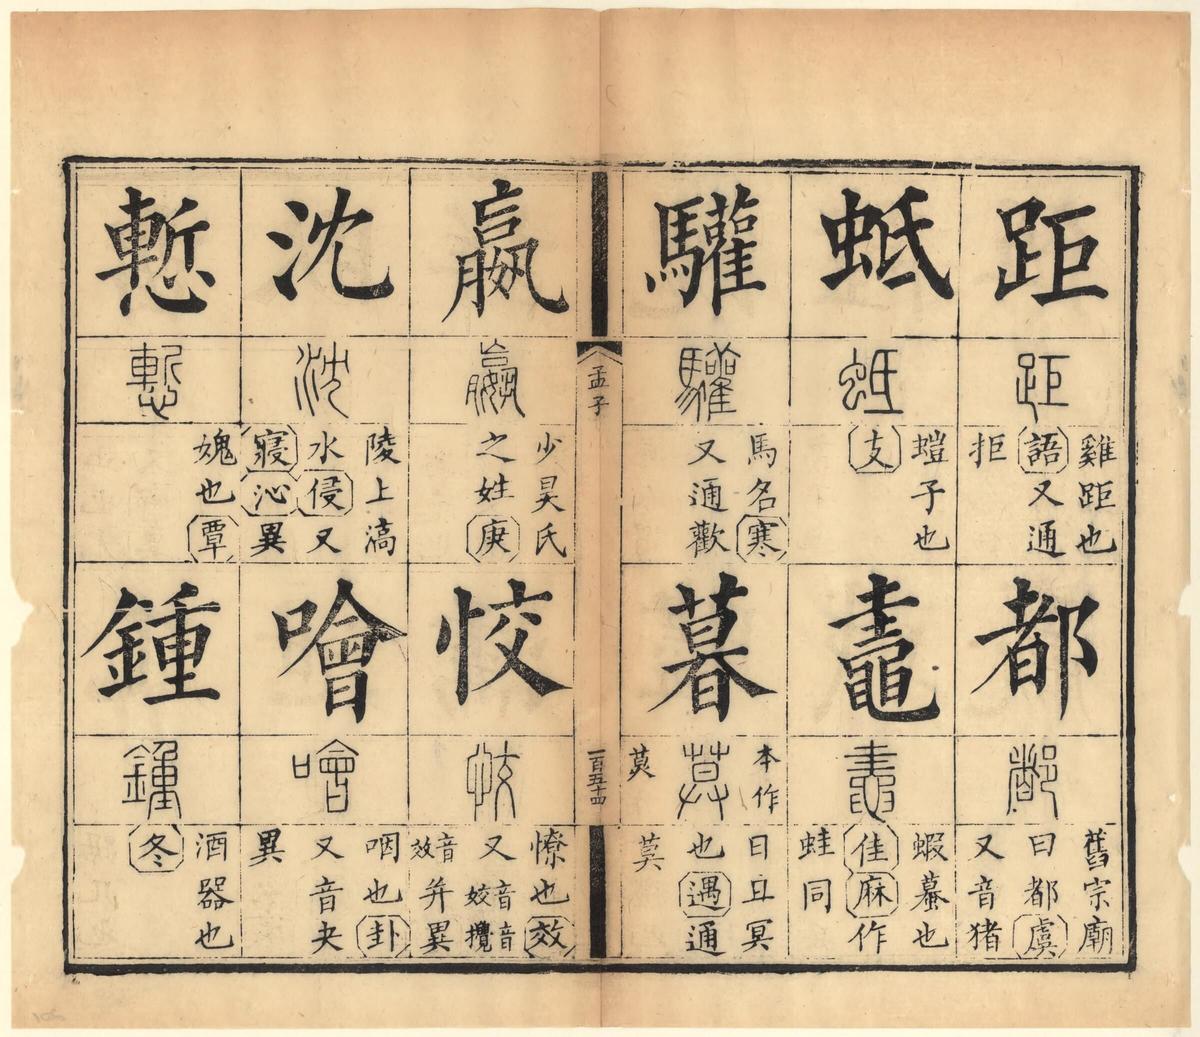 距
距
雞距也
語又通
拒
都
都
舊宗廟
曰都虞
又音猪
蚳
蚳
螘子也
支
鼃
鼃
蝦蟇也
佳麻作
蛙同
驩
驩
馬名寒
又通歡
暮
本作
莫
莫
日且冥
也遇通
莫
孟子
一百五十四
嬴
嬴
少昊氏
之姓庚
恔
恔
憭也效
又音姣音攪
音效并異
沈
沈
陵上滈
水侵又
寢沁異
噲
噲
咽也卦
又音夬
異
慙
慙
媿也覃
鍾
鍾
酒器也
冬